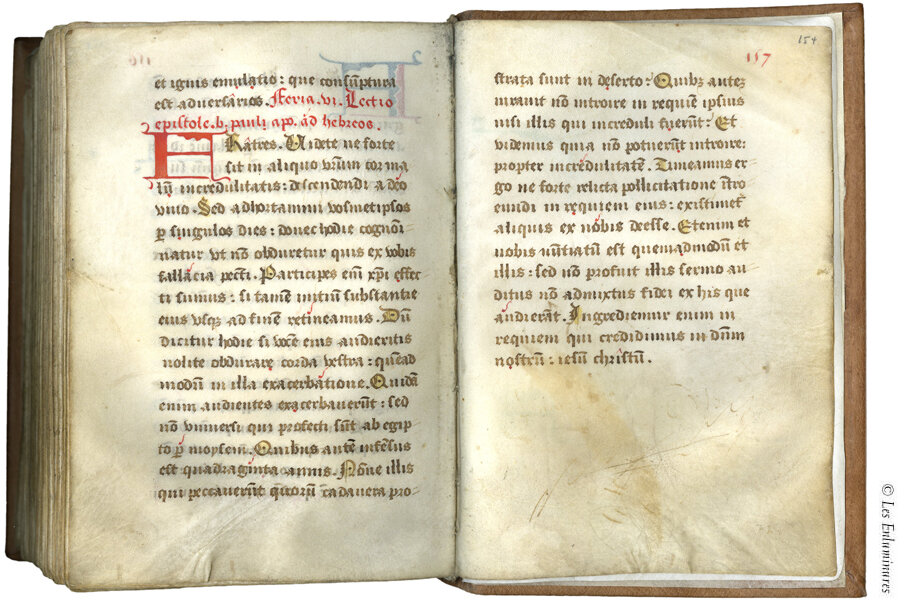 et ignis emulatio: que consūptura
est adversarios. Feria. vi. Lectio
epistole. b. pauli apo. ad hebreos.
FRatres. Videte ne forte
sit in aliquo vr̄um cor ma
lū incredulitatis: descendendi a deo
vivo. Sed adhortamini vosmetipsos
p̱ singulos dies: donec hodie cognoī
natur vt nō obduretur quis ex vobis
fallacia pecc̄ti. Participes eni̅ xp̄i effec
ti sumus: si tamē initiū substantie
eius vsq̄ ad finē retineamus. Dū
dicitur hodie si vocē eius audieritis
nolite obdurare corda vestra: quēad
modū in illa exacerbatione. Quidā
enim audientes exacerbaverūt: sed
nō vniversi qui profecti sūt ab egip
to p̱ moysem. Quibus autē infēsus
est quadraginta annis. Nōne illis
qui peccaverūt quorū cadavera pro-
154
157
strata sunt in deserto: Quibꝫ autez
iuravit nō introire in requiē ipsius
nisi illis qui increduli fuerūt: Et
videmus quia nō potuerūt introire:
propter incredulitatē. Timeamus er
go ne forte relicta pollicitatione ītro
eundi in requiem eius: existimet̄
aliquis ex nobis deesse. Etenim et
nobis nūtiatū est quemadmodū et
illis: sed nō profuit illis sermo au
ditus nō admixtus fidei ex his que
audierāt. Ingrediemur enim in
requiem qui credidimus in dn̄m
nostrū: iesū christū.
© Les Enluminures